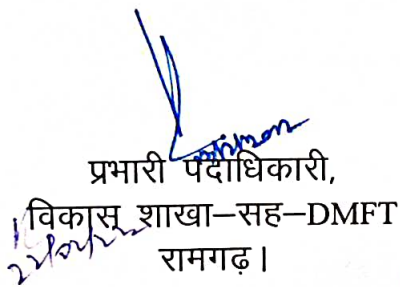 प्रभारी पदाधिकारी,
विकास शाखा–सह–DMFT
रामगढ़।